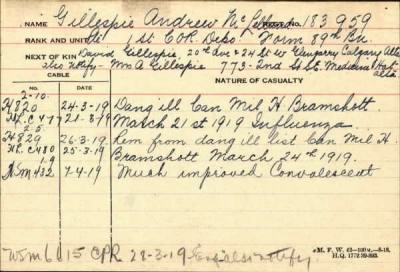 Name Gillespie Andrew Mc No. 183959
RANK AND UNIT 1st C.O.R. Depo. Form 89th Bn.
NEXT OF KIN David Gillespie, 20th Ave & 24th St W Glengarry Calgary Alta
also notify- Wm A Gillespie 773-2nd St. Medicine Hat. Alta
CABLE NATURE OF CASUALTY
No. DATE
2-10.
H820 24-3-19 Dang ill Can Mil H. Bramshott
HR.C477 21-3-19 March 21st 1919 Influenza.
H830 26-3-19 Rem from dang ill list Can Mil H.
HR.C480 25-3-19 Bramshott March 24th 1919.
19
M432 7-4-19 Much improved Convalescent
Wsm6615 CPR 28-3-19 Eng also notify.
M. F. W. 42
H.Q. 1772-39-893.